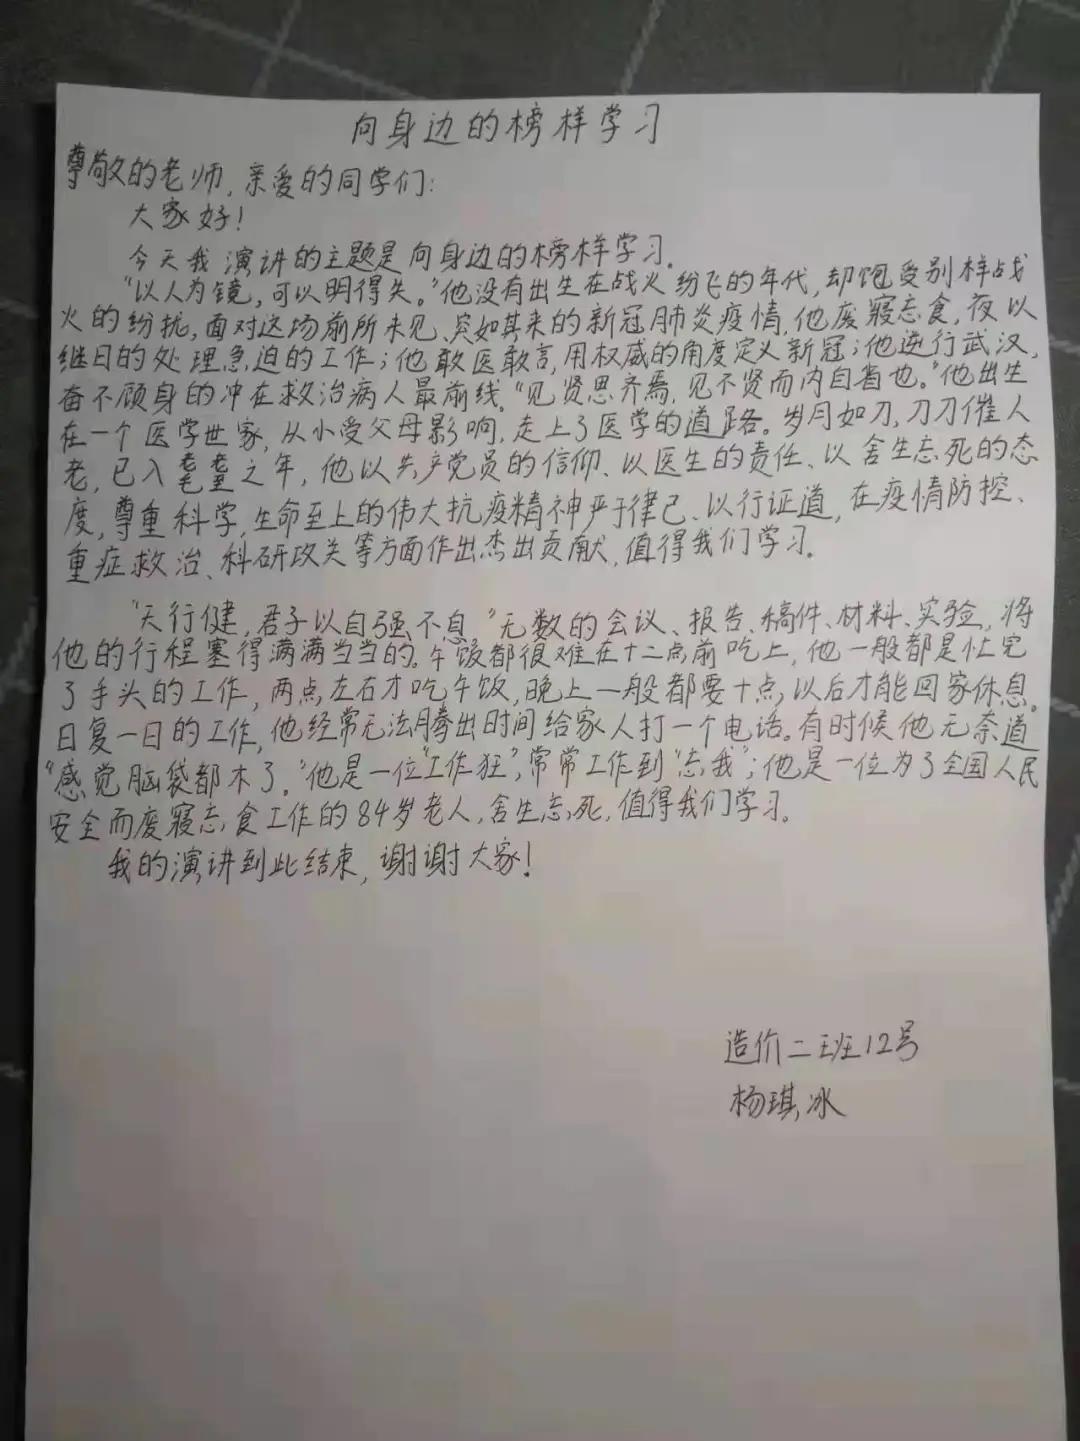 向身边的榜样学习
尊敬的老师,亲爱的同学们:
大家好!
今天我演讲的主题是向身边的榜样学习。
“以人为镜,可以明得失。”他没有出生在战火纷飞的年代,却饱受别样战
火的纷扰,面对这场前所未见、突如其来的新冠肺炎疫情,他废寝忘食,夜以
继日的处理急迫的工作;他敢医敢言,用权威的角度定义新冠;他逆行武汉,
奋不顾身的冲在救治病人最前线。“见贤思齐焉,见不贤而内自省也。”他出生
在一个医学世家,从小受父母影响,走上了医学的道路。岁月如刀,刀刀催人
老,已入耄耋之年,他以共产党员的信仰、以医生的责任、以舍生忘死的态
度,尊重科学,生命至上的伟大抗疫精神严于律己、以行证道,在疫情防控、
重症救治、科研攻关等方面作出杰出贡献,值得我们学习。
“天行健,君子以自强不息”无数的会议、报告、稿件、材料、实验,将
他的行程塞得满满当当的。午饭都很难在十二点前吃上,他一般都是忙完
了手头的工作,两点左右才吃午饭,晚上一般都要十点以后才能回家休息。
日复一日的工作,他经常无法腾出时间给家人打一个电话。有时候他无奈道
“感觉脑袋都木了。”他是一位“工作狂”,常常工作到“忘我”;他是一位为了全国人民
安全而废寝忘食工作的84岁老人,舍生忘死,值得我们学习。
我的演讲到此结束,谢谢大家!
造价二班12号
杨琪冰